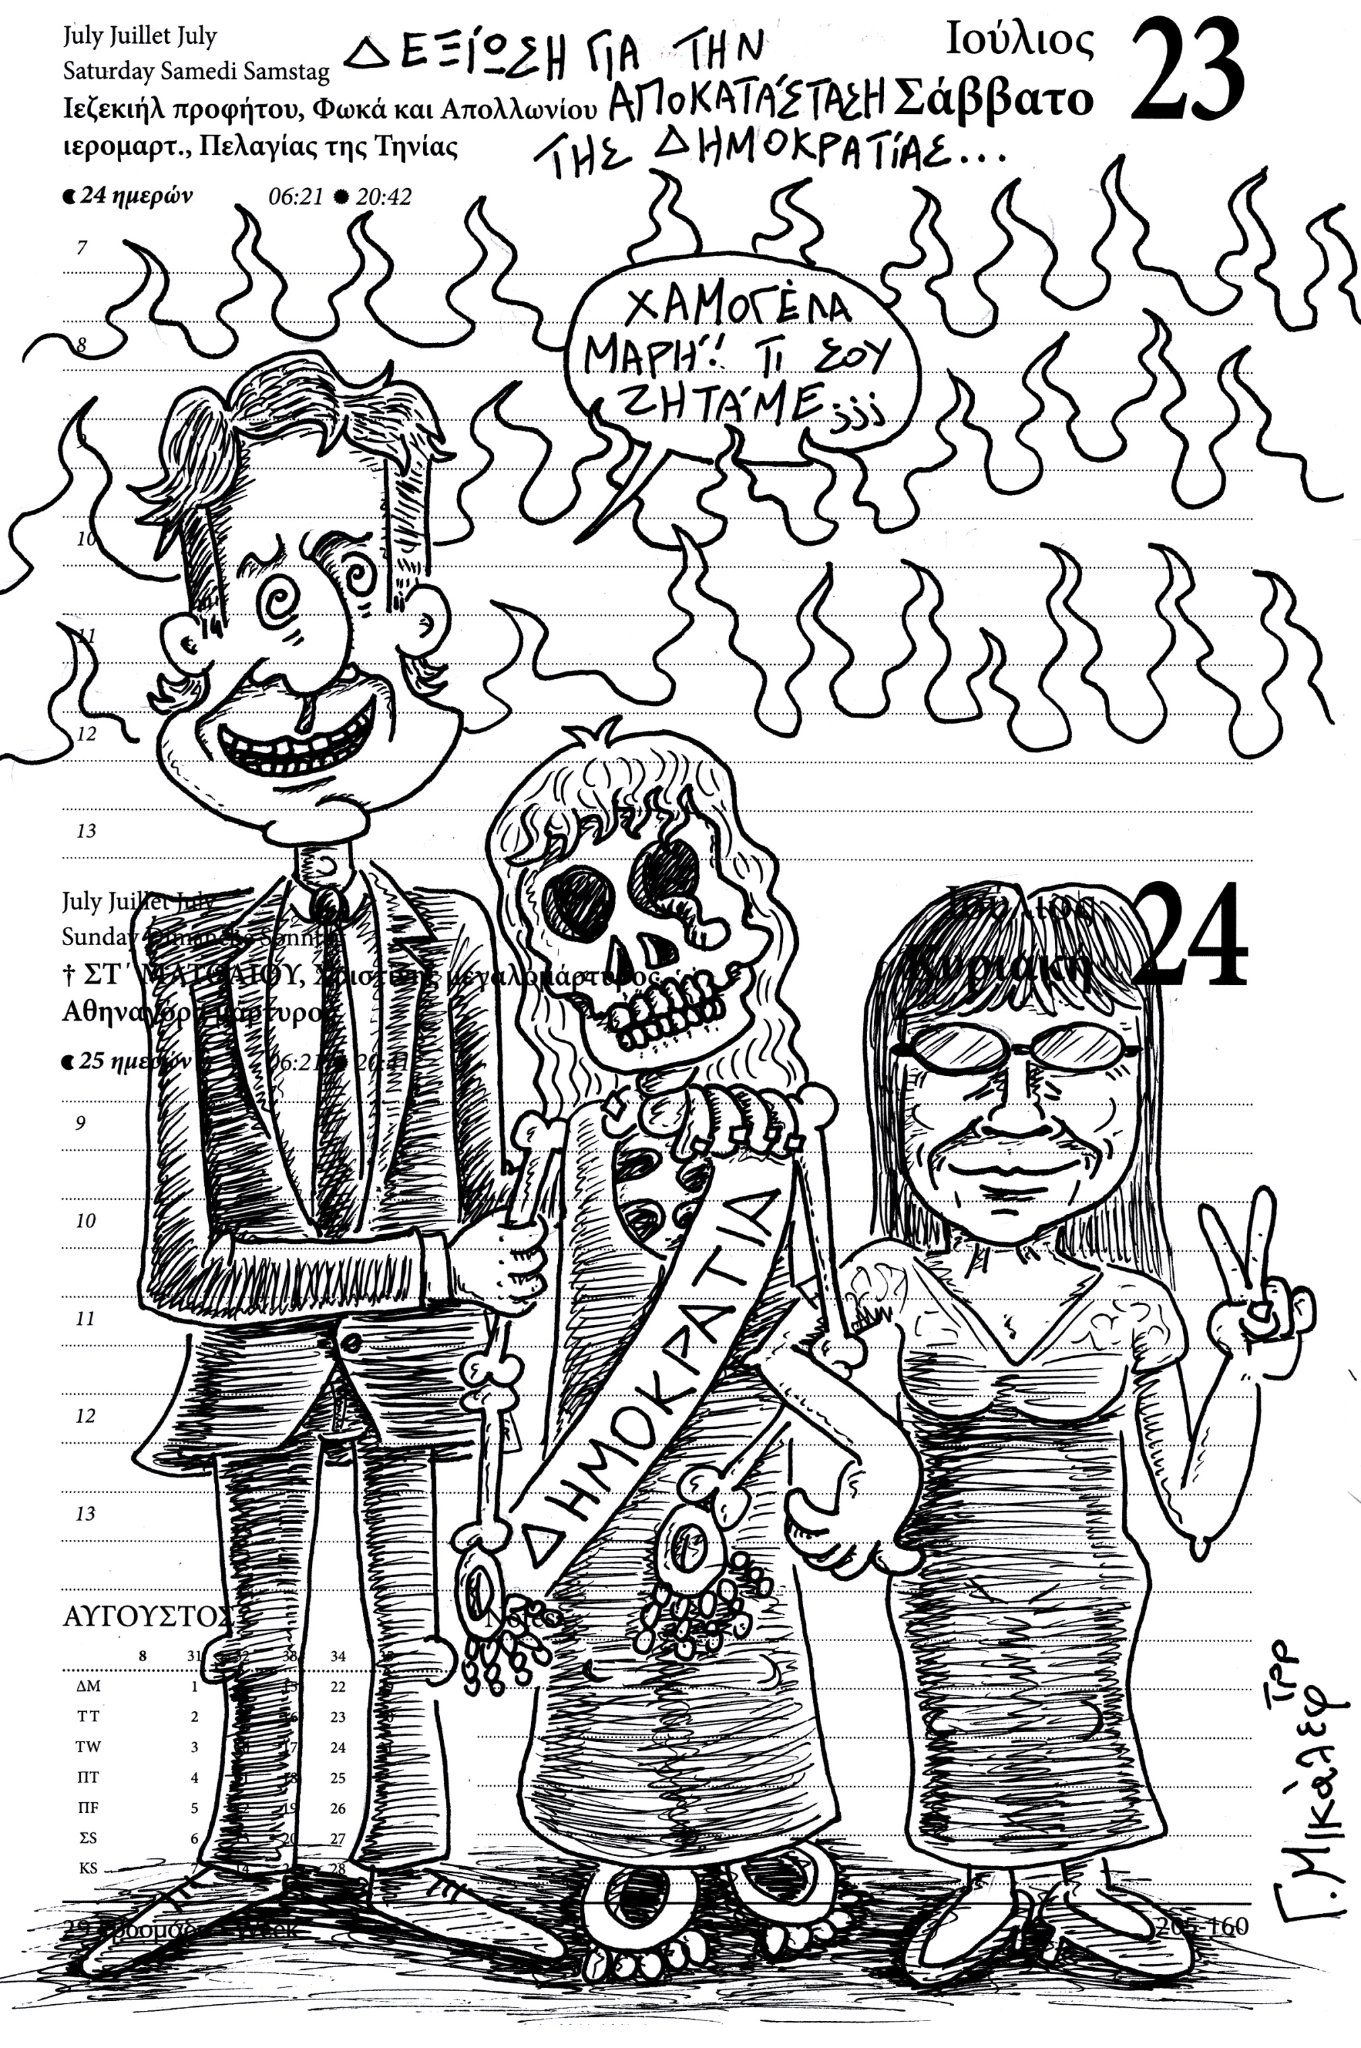 July Juillet July
Saturday Samedi Samstag
Ιεζεκιήλ προφήτου, Φωκά και Απολλωνίου
ιερομαρτ., Πελαγίας της Τηνίας
24 ημερών 06:21 20:42
Ιούλιος
Σάββατο
23
ΔΕΞΙΩΣΗ ΓΙΑ ΤΗΝ
ΑΠΟΚΑΤΑΣΤΑΣΗ
ΤΗΣ ΔΗΜΟΚΡΑΤΙΑΣ...
7
8
9
10
11
12
13
ΧΑΜΟΓΕΛΑ
ΜΑΡΗ!! ΤΙ ΣΟΥ
ΖΗΤΑΜΕ;;;
July Juillet July
Sunday Dimanche Sonntag
† ΣΤ΄ ΜΑΤΘΑΙΟΥ, Χριστίνης μεγαλομάρτυρος
Αθηναγόρα μάρτυρος
25 ημερών 06:21 20:41
Ιούλιος
Κυριακή
24
9
10
11
12
13
ΔΗΜΟΚΡΑΤΙΑ
ΑΥΓΟΥΣΤΟΣ
Notes
8 31 32 33 34 35
ΔΜ 1 15 22
ΤΤ 2 16 23 30
TW 3 17 24 31
ΠΤ 4 11 18 25
ΠF 5 12 19 26
ΣS 6 13 20 27
KS 7 14 28
29 εβδομάδα Week
205-160
Γ. Μικάλεφ
ΤΡΡ